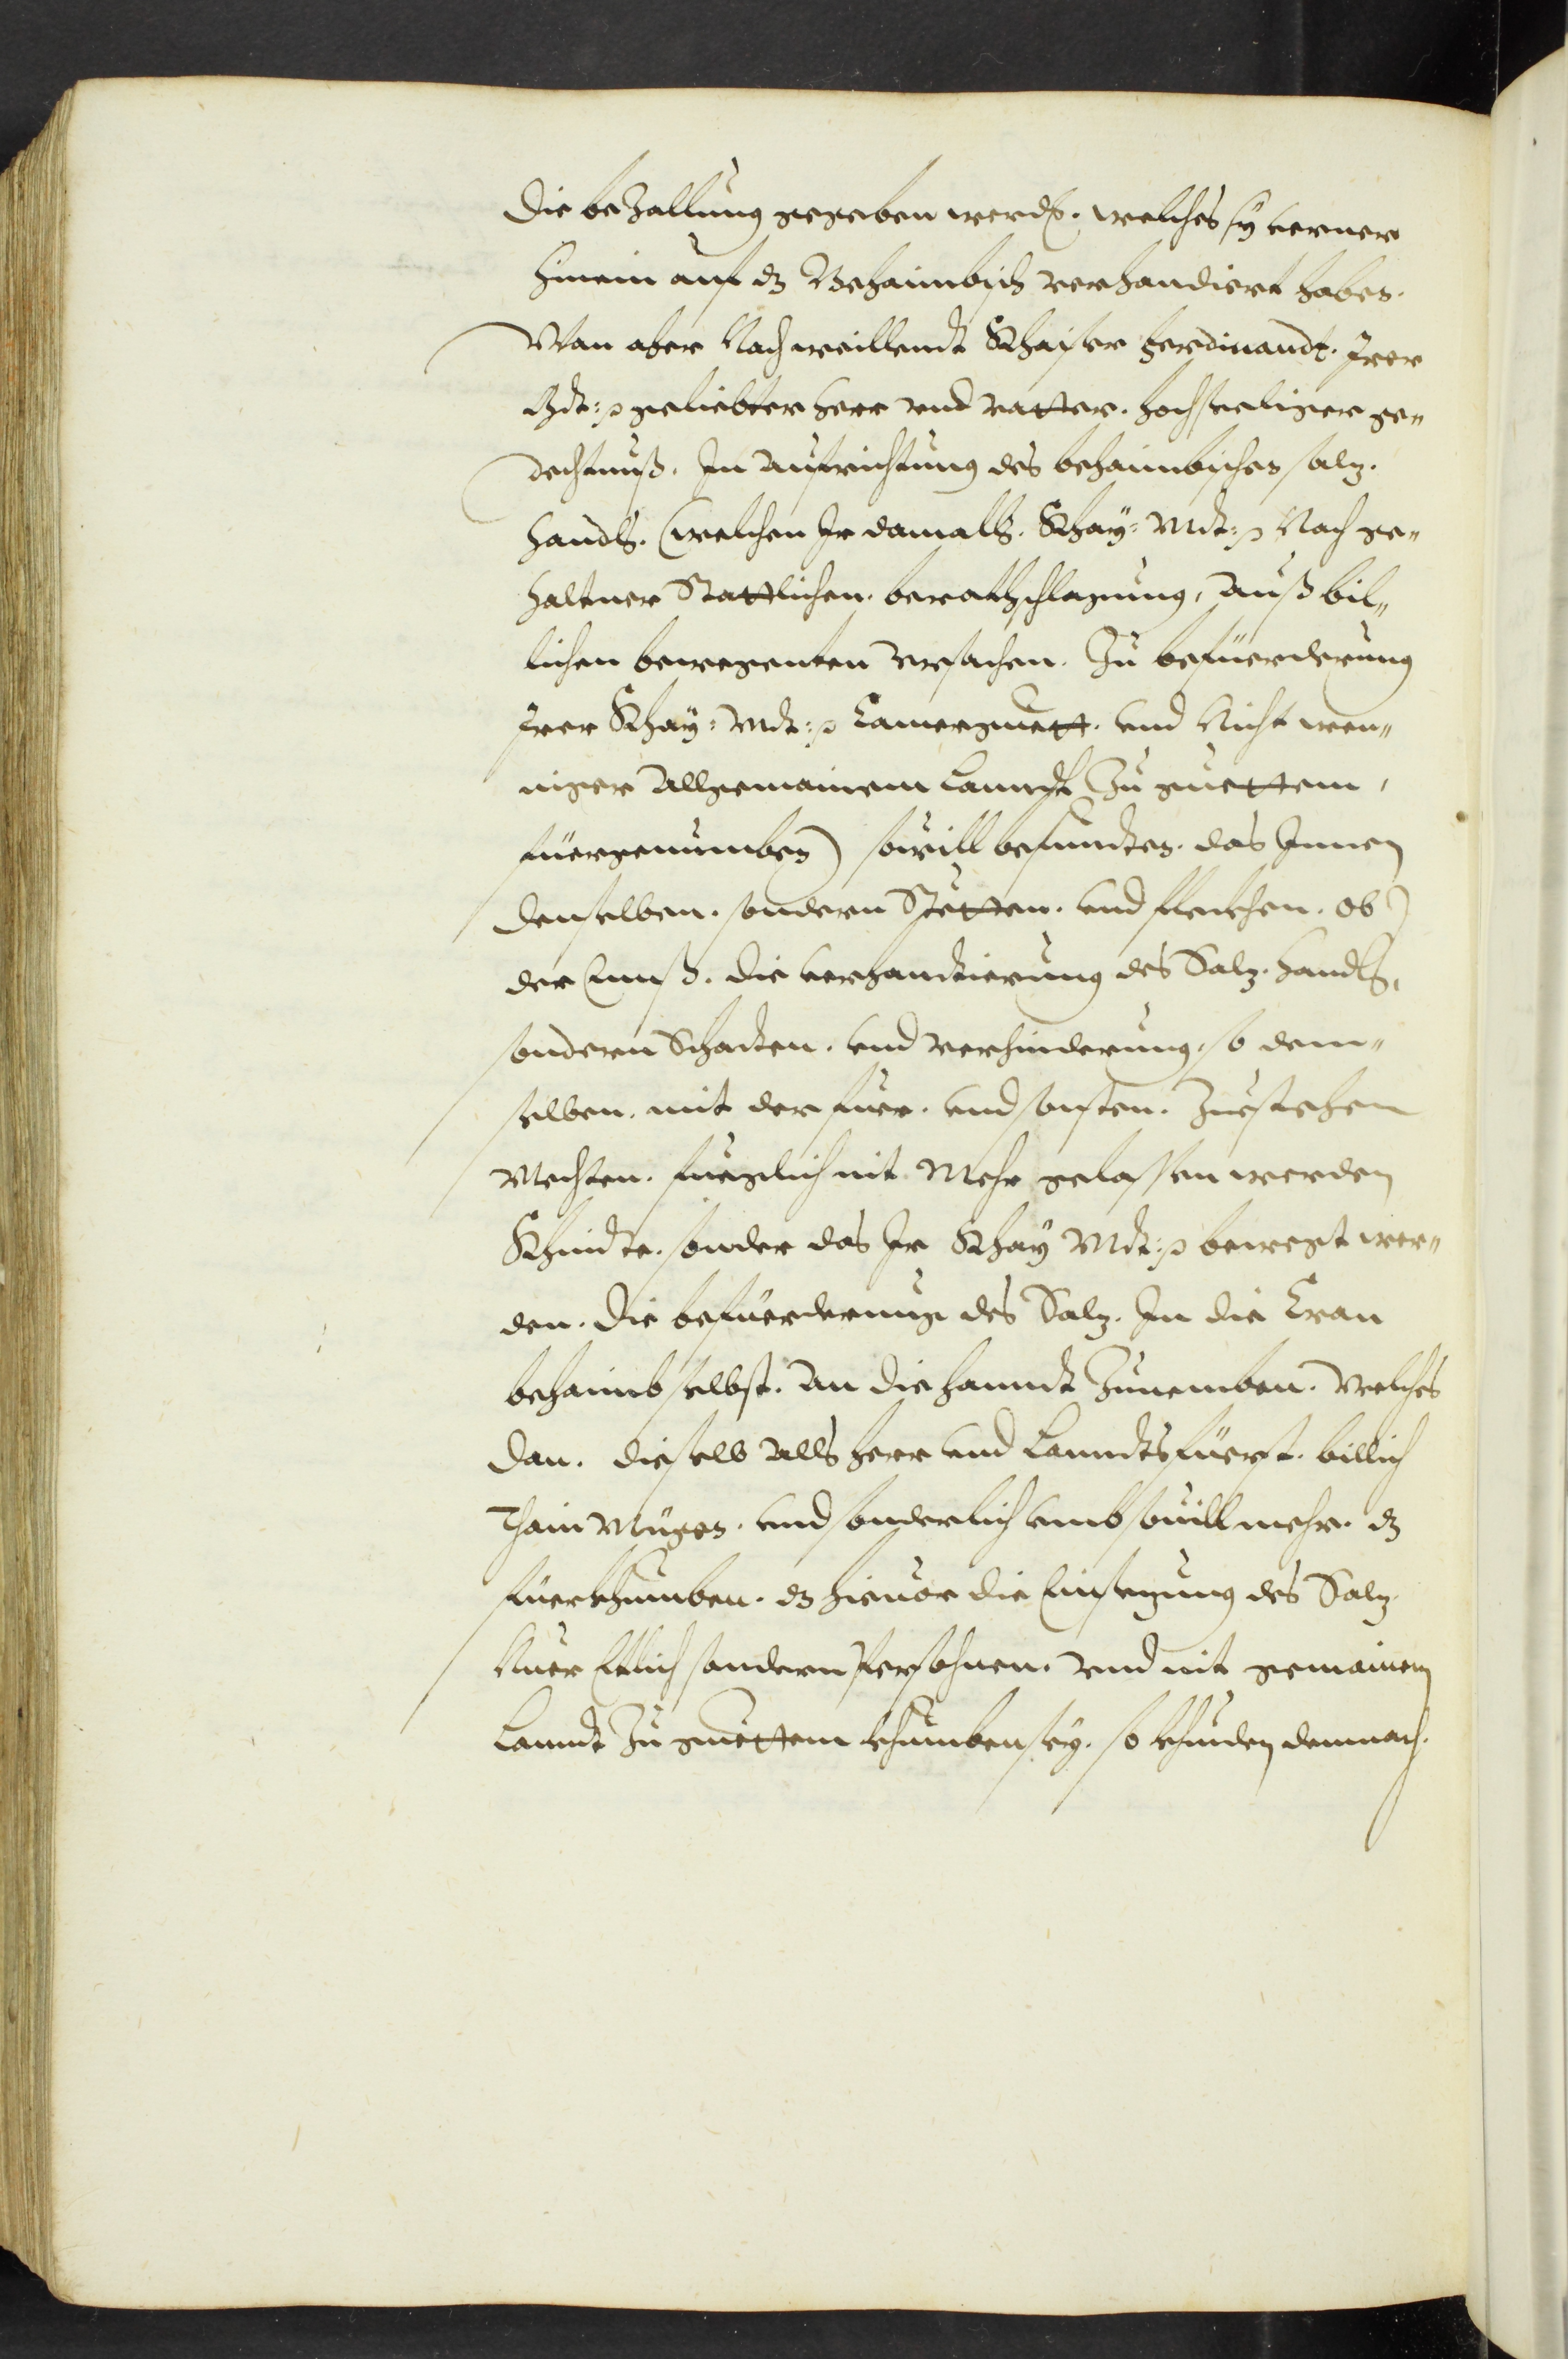 die beZallung gegeben werdn. welches sy verner
hinein auf dz Behaimbisch verhandiert haben.
Wan aber Nach weillendt Khayser Ferdinandt. Irer
Mdt: geliebter herr und vatter. hochseeliger ge„
dechtnuß. In Aufrichtung des behaimbischen salz.
handls. (welchen Ir damalls. Khay: Mdt: Nach ge„
haltner Stattlichen. berathschlagung, Auß bil„
lichen bewegenten Ursachen. Zu befüerderung
Irer Khay: Mdt: Camerguett. und Nicht wen„
niger Allgemainem Lanndt Zu guettem,
füergenumben) sovill befunden. das Innen
denselben. sondern Stetten. und fleckhen. ob
der Ennß. die verhandtierung des Salz. handls,
sondern Schaden. und verhinderung, so dem„
selben. mit der fuer. und sonsten. Zuestehen
Mechten. fueglich nit Mehr gelassen werden
Khindte. sonder das Ir Khay Mdt: bewegt wer„
den. die befüerderung des Salz. In die Cran
behaimb selbst. An die hanndt Zunemben. Welches
dan. dieselb Alls herr und Lanndtsfüerst. billich
Thain Mügen. und sonderlich umb sovill mehr. dz
fuerkhumben. dz hievor die Einsezung des Salz
Nuer Etlich sondern Persohnen. und nit gemainem
Lanndt Zu guettem khumben sey. so khinden demnach.